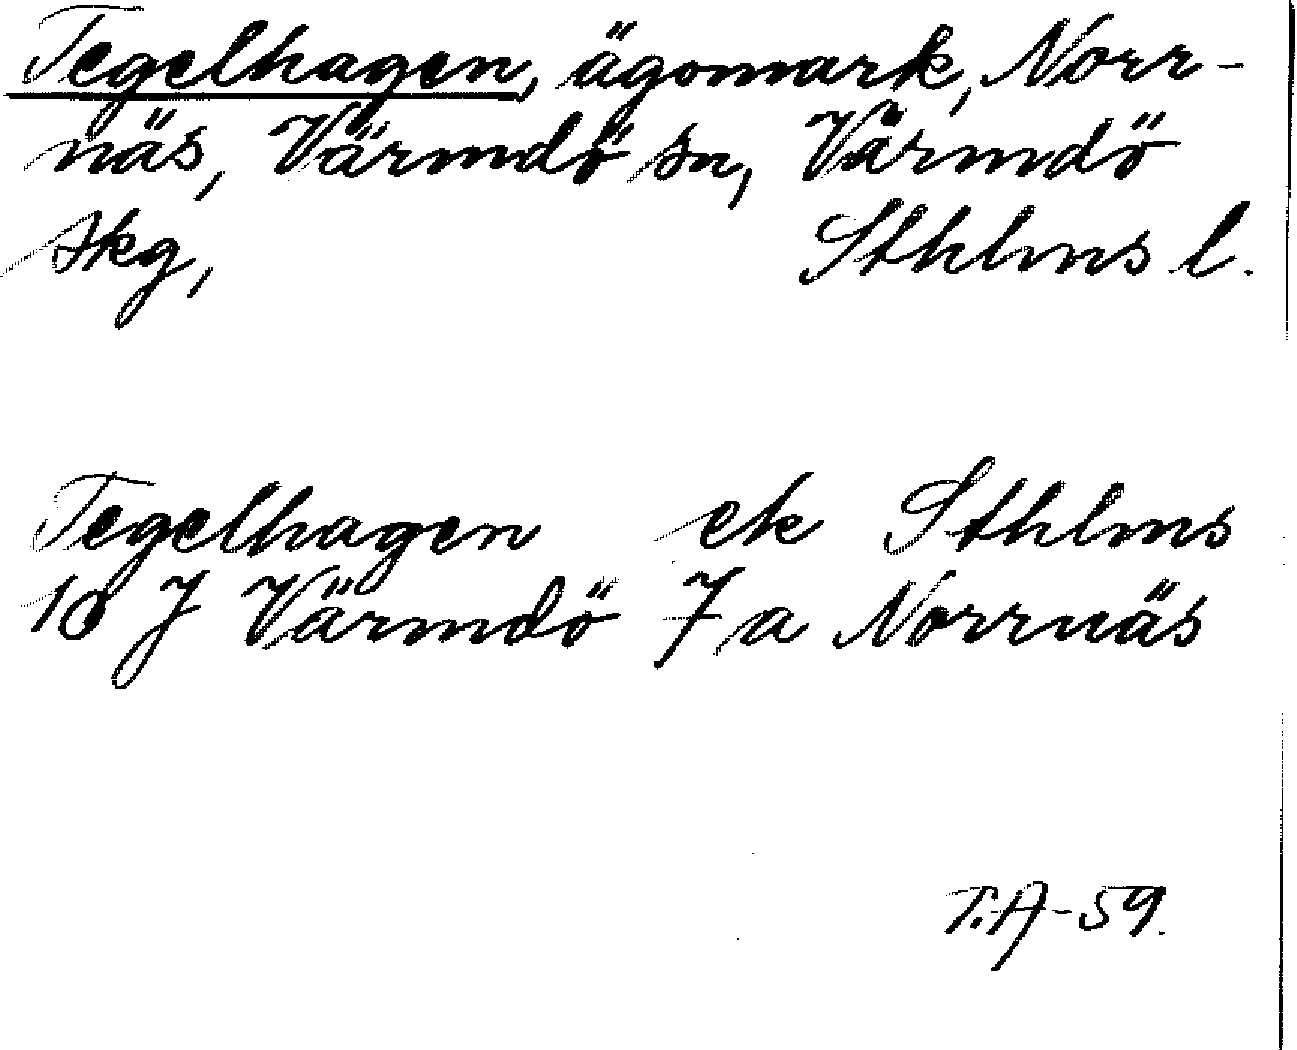 Tegelhagen, ägomark, Norr-
näs, Värmdö sn, Värmdö
skg, Sthlms l.
Tegelhagen ek Sthlms
10 J Värmdö 7 a Norrnäs
T.A-59.